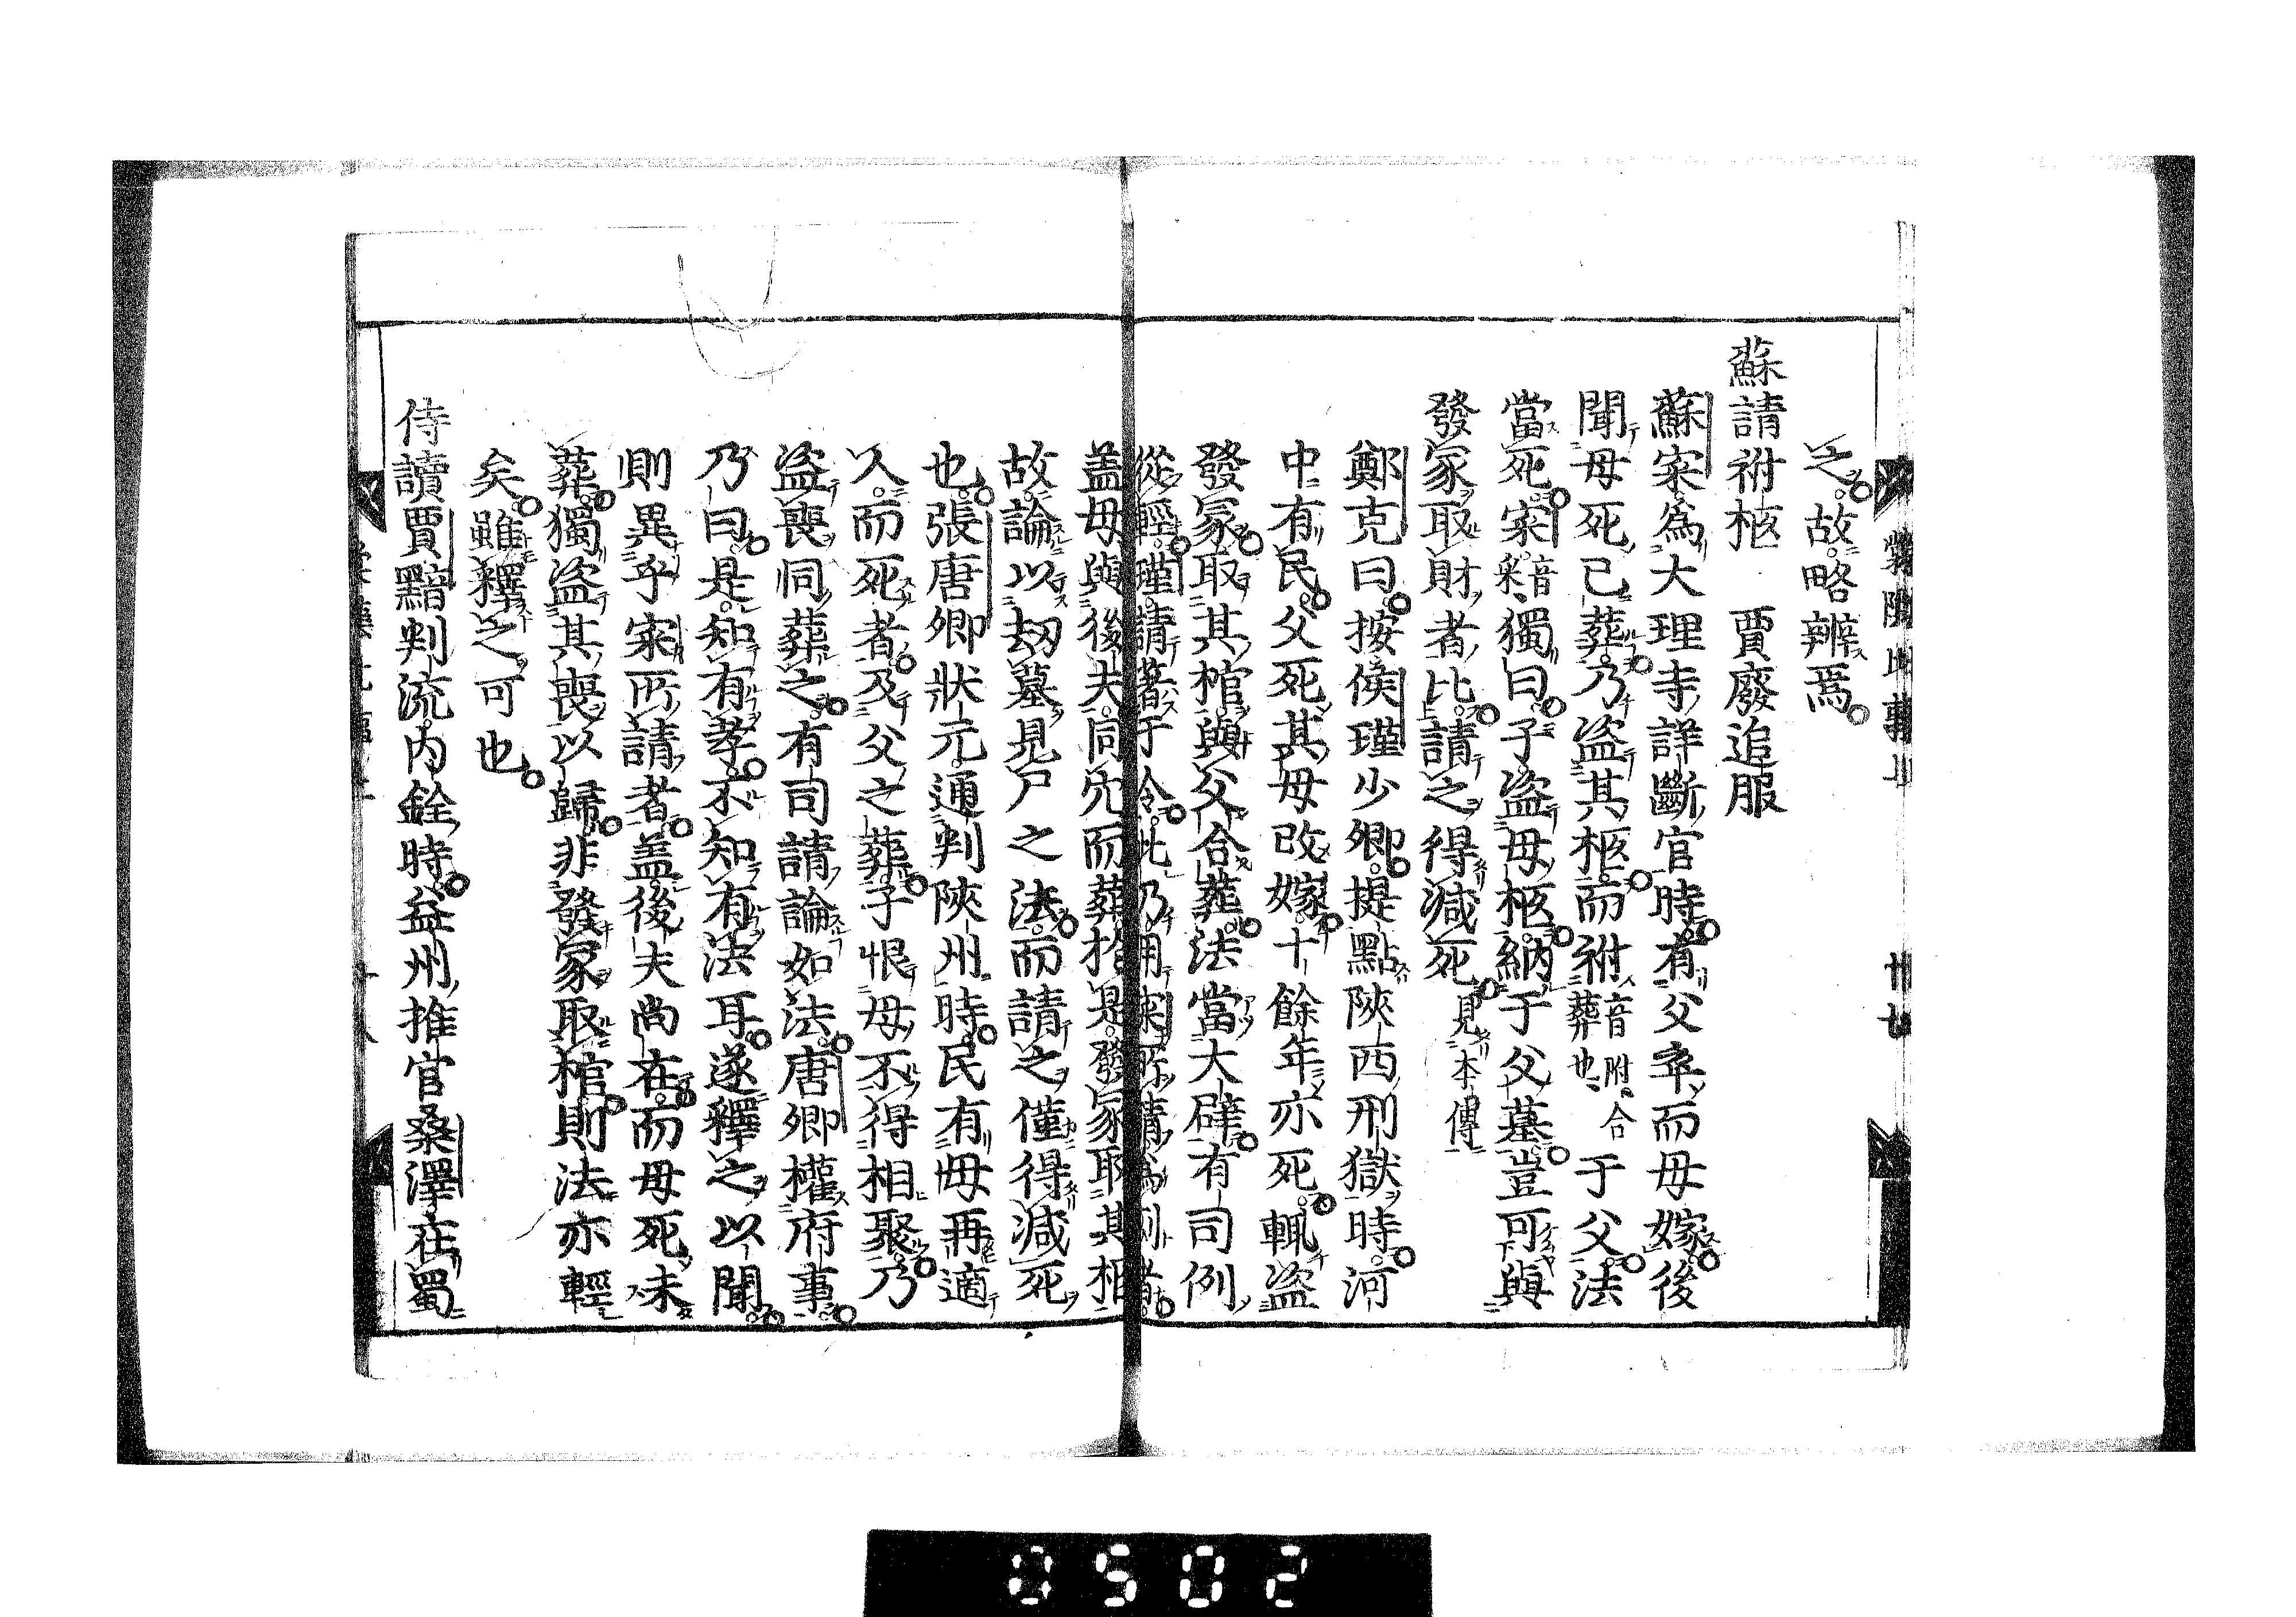 之故略辨焉
蘇請祔柩　賈廢追服
蘇寀爲大理寺詳斷官時有父卒而母嫁後
聞母死已葬乃盗其柩而祔音附合葬也于父法
當死寀音采獨曰子盗母柩納于父墓豈可與
發冢取財者比請之得減死見本傳
鄭克曰按侯瑾少卿提點陝西刑獄時河
中有民父死其母改嫁十餘年亦死輒盗
發冢取其棺與父合葬法當大辟有司例
從輕瑾請著于令此乃用寀所請爲例
盖母與後夫同穴而葬於是發冢取其柩
故論以刧墓見尸之法而請之僅得減死
也張唐卿狀元通判陝州時民有母再適
人而死者及父之葬子恨母不得相聚乃
盗喪同葬之有司請論如法唐卿權府事
乃曰是知有孝不知有法耳遂釋之以聞
則異乎寀所請者盖後夫尚在而母死未
葬獨盗其喪以歸非發冢取棺則法亦輕
矣雖釋之可也
侍讀賈黯判流内銓時益州推官桑澤在蜀
0502